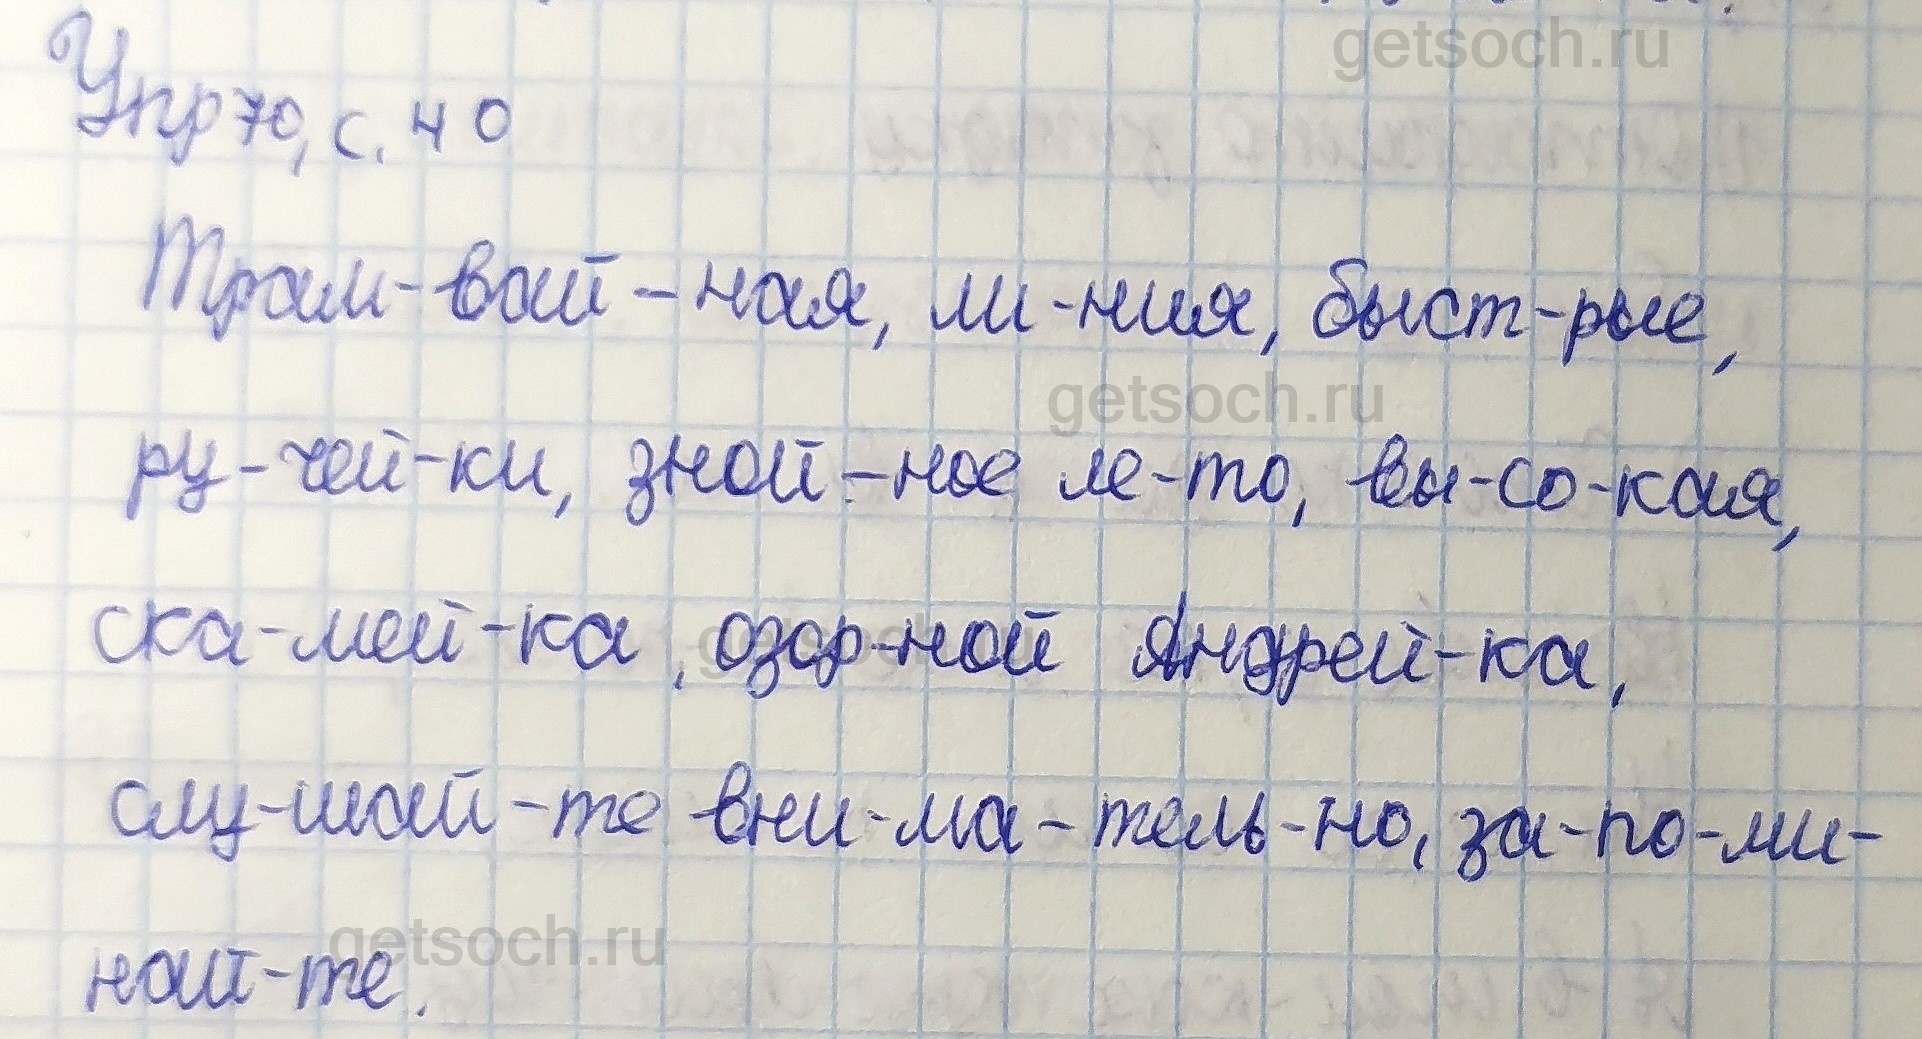 getsoch.ru
Упр 70, с. 40
Трам-вай-ная, ли-ния, быст-рые,
getsoch.ru
ру-чей-ки, зной-ное ле-то, вы-со-кая,
ска-мей-ка, озор-ной Андрей-ка,
getsoch.ru
слу-шай-те вни-ма-тель-но, за-по-ми-
най-те.
getsoch.ru